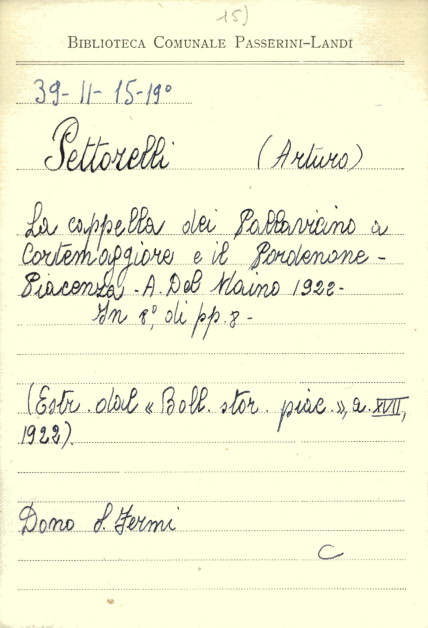 15)
BIBLIOTECA COMUNALE PASSERINI-LANDI
39-11-15-19°
Pettorelli (Arturo)
La cappella dei Pallavicino a
Cortemaggiore e il Pordenone -
Piacenza - A. Del Maino 1922-
In 8°, di pp. 8 -
(Estr. dal « Boll. stor. piac. », a. XVII,
1922).
Dono S. Fermi
C